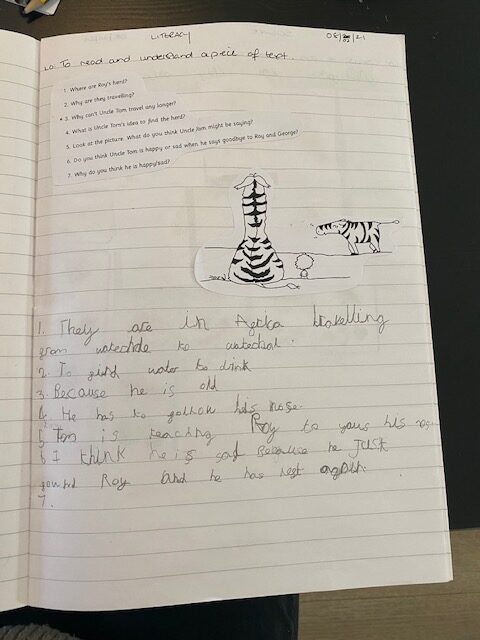 LITERACY
08/02/21
LO: To read and understand a piece of text.
1. Where are Roy's herd?
2. Why are they travelling?
3. Why can't Uncle Tom travel any longer?
4. What is Uncle Tom's idea to find the herd?
5. Look at the picture. What do you think Uncle Tom might be saying?
6. Do you think Uncle Tom is happy or sad when he says goodbye to Roy and George?
7. Why do you think he is happy/sad?
1. They are in travelling
to
2. To water to drink
3. Because he is old
4. He has to his nose.
5 Tom is teaching Roy to his
6 I think he is sad Because he Just
Roy and he has
7.